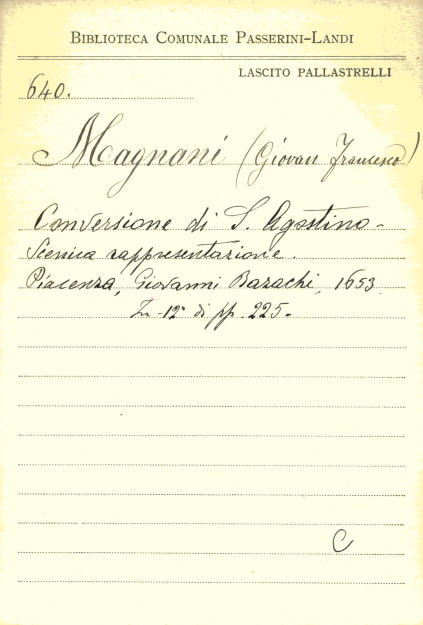 BIBLIOTECA COMUNALE PASSERINI-LANDI
LASCITO PALLASTRELLI
640.
Magnani (Giovan Francesco)
Conversione di S. Agostino-
Scenica rappresentazione.
Piacenza, Giovanni Bazachi, 1653
In-12° di pp. 225.
C